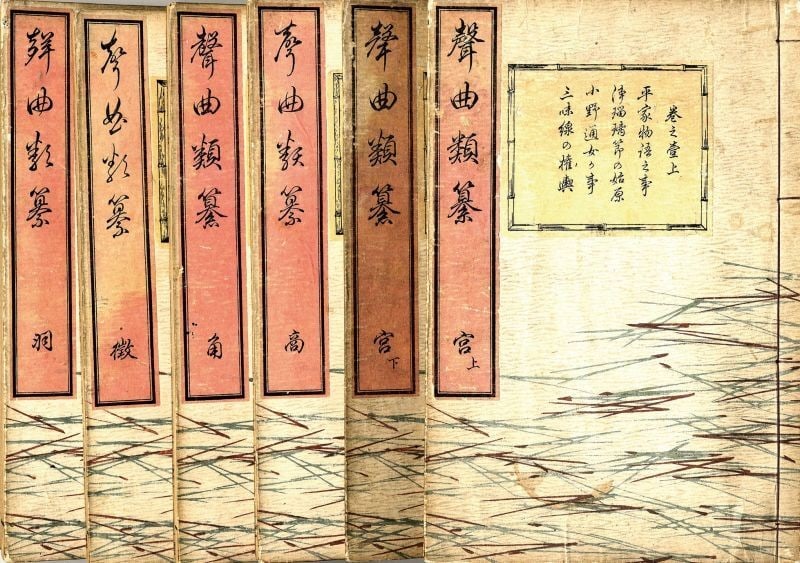 卷之壹上
平家物語之事
浄瑠璃節の始原
小野通女か事
三味線の權輿
聲曲類纂 宮上
聲曲類纂 宮下
聲曲類纂 商
聲曲類纂 角
聲曲類纂 徴
聲曲類纂 羽